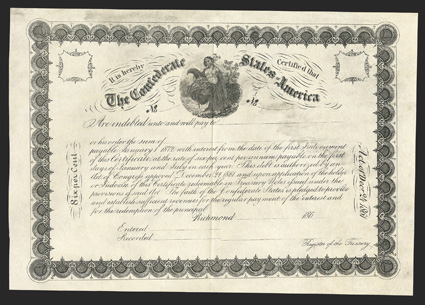 It is hereby Certified that
The Confederate States of America
No. No.
Are indebted unto and will pay to
or his order the sum of
payable January 1 1872 with interest from the date of the first Indorsement
of this Certificate at the rate of six per cent per annum payable on the first
day of January and July in each year. This debt is authorized by an
Act of Congress approved December 24 1861 and upon application of the holder
or Indorsee of this Certificate redeemable in Treasury Notes fund under the
provisions of said Act. The faith of the Confederate States is pledged to provide
and establish sufficient revenues for the regular payment of the interest and
for the redemption of the principal
Richmond 186
Entered
Recorded
Register of the Treasury
Six per Cent
Act of Decr 24 1861